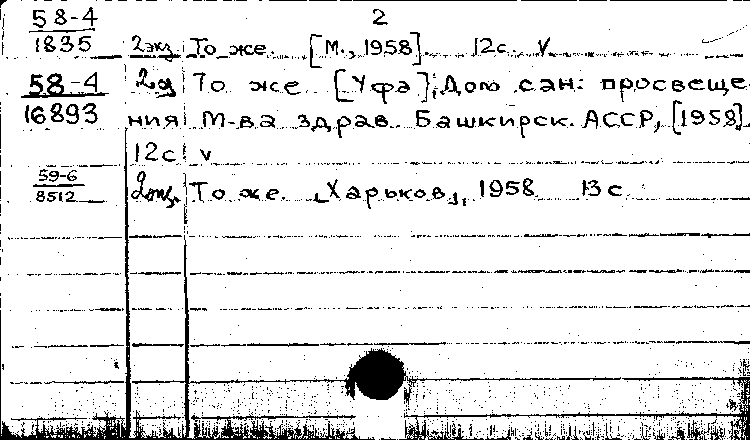 58-4 2
1835 2экз. То же. [М., 1958]. 12с. V
58-4 2э То же [Уфа], Дом сан. просвеще
16893 ния М-ва здрав. Башкирск. АССР, [1958].
12с. V
59-6
8512 2экз. То же. [Харьков], 1958 13с.